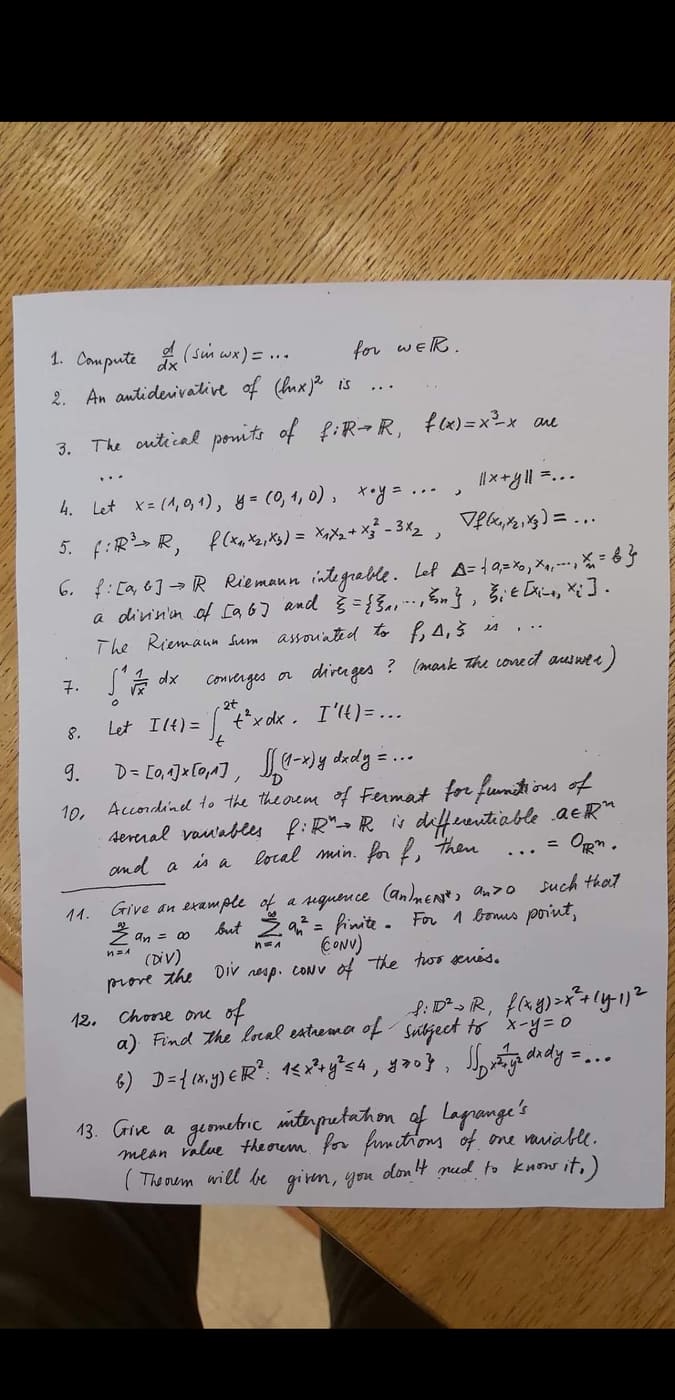 1. Compute d/dx (sin wx) = ... for w∈ℝ.
2. An antiderivative of (lnx)² is ...
3. The critical points of f:ℝ→ℝ, f(x)=x³-x are
...
4. Let x=(1,0,1), y=(0,1,0), x•y= ... , ||x+y||=...
5. f:ℝ³→ℝ, f(x₁,x₂,x₃) = x₁x₂+x₃²-3x₂ , ∇f(x₁,x₂,x₃)=...
6. f:[a,b]→ℝ Riemann integrable. Let Δ={a=x₀,x₁,...,xₙ=b}
a division of [a,b] and ξ={ξ₁,...,ξₙ}, ξᵢ∈[xᵢ₋₁,xᵢ].
The Riemann sum associated to f,Δ,ξ is ...
7. ∫₀¹ 1/√x dx converges or diverges? (mark the correct answer)
8. Let I(t)=∫ₜ²ᵗ t²x dx. I'(t)=...
9. D=[0,1]x[0,1], ∬_D (1-x)y dxdy=...
10. Accordind to the theorem of Fermat for functions of
several variables f:ℝⁿ→ℝ is differentiable a∈ℝⁿ
and a is a local min. for f, then ... = 0_ℝⁿ.
11. Give an example of a sequence (aₙ)ₙ∈ℕ*, aₙ>0 such that
∞Σn=1 aₙ = ∞ but ∞Σn=1 aₙ² = finite. For 1 bonus point,
(DIV) (CONV)
prove the DIV resp. CONV of the two series.
12. Choose one of f:D²→ℝ, f(x,y)=x²+(y-1)²
a) Find the local extrema of subject to x-y=0
b) D={(x,y)∈ℝ²: 1≤x²+y²≤4, y≥0}, ∬_D 1/(x²+y²) dxdy=...
13. Give a geometric interpretation of Lagrange's
mean value theorem for functions of one variable.
(Theorem will be given, you don't need to know it.)